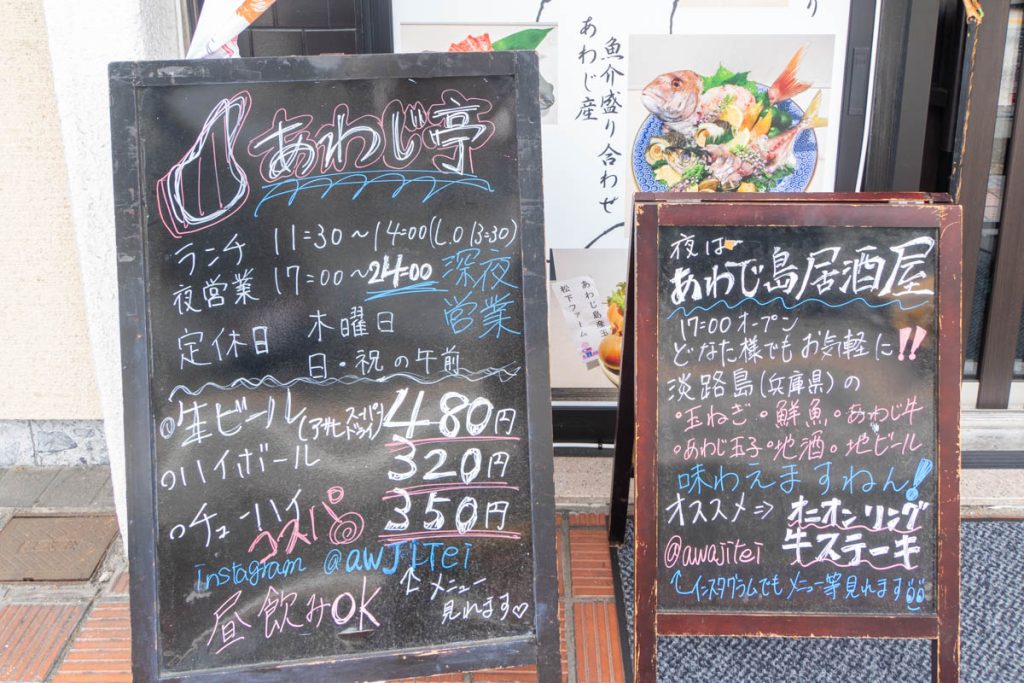 あわじ亭
ランチ 11:30〜14:00(L.O 13:30)
夜営業 17:00〜24:00 深夜営業
定休日 木曜日
日・祝の午前
生ビール(アサヒスーパードライ) 480円
ハイボール 320円
チューハイ 350円
コスパ
instagram @awJiTei
昼飲みOK
↑メニュー
見れます♡
あわじ産
魚介盛り合わせ
あわじ島産玉
松下ファーム
夜は
あわじ島居酒屋
17:00オープン
どなた様でもお気軽に!!
淡路島(兵庫県)の
・玉ねぎ・鮮魚・あわじ牛
・あわじ玉子・地酒・地ビール
味わえますねん!
オススメ⇒ オニオンリング
牛ステーキ
@awajitei
↑インスタグラムでもメニュー等見れます